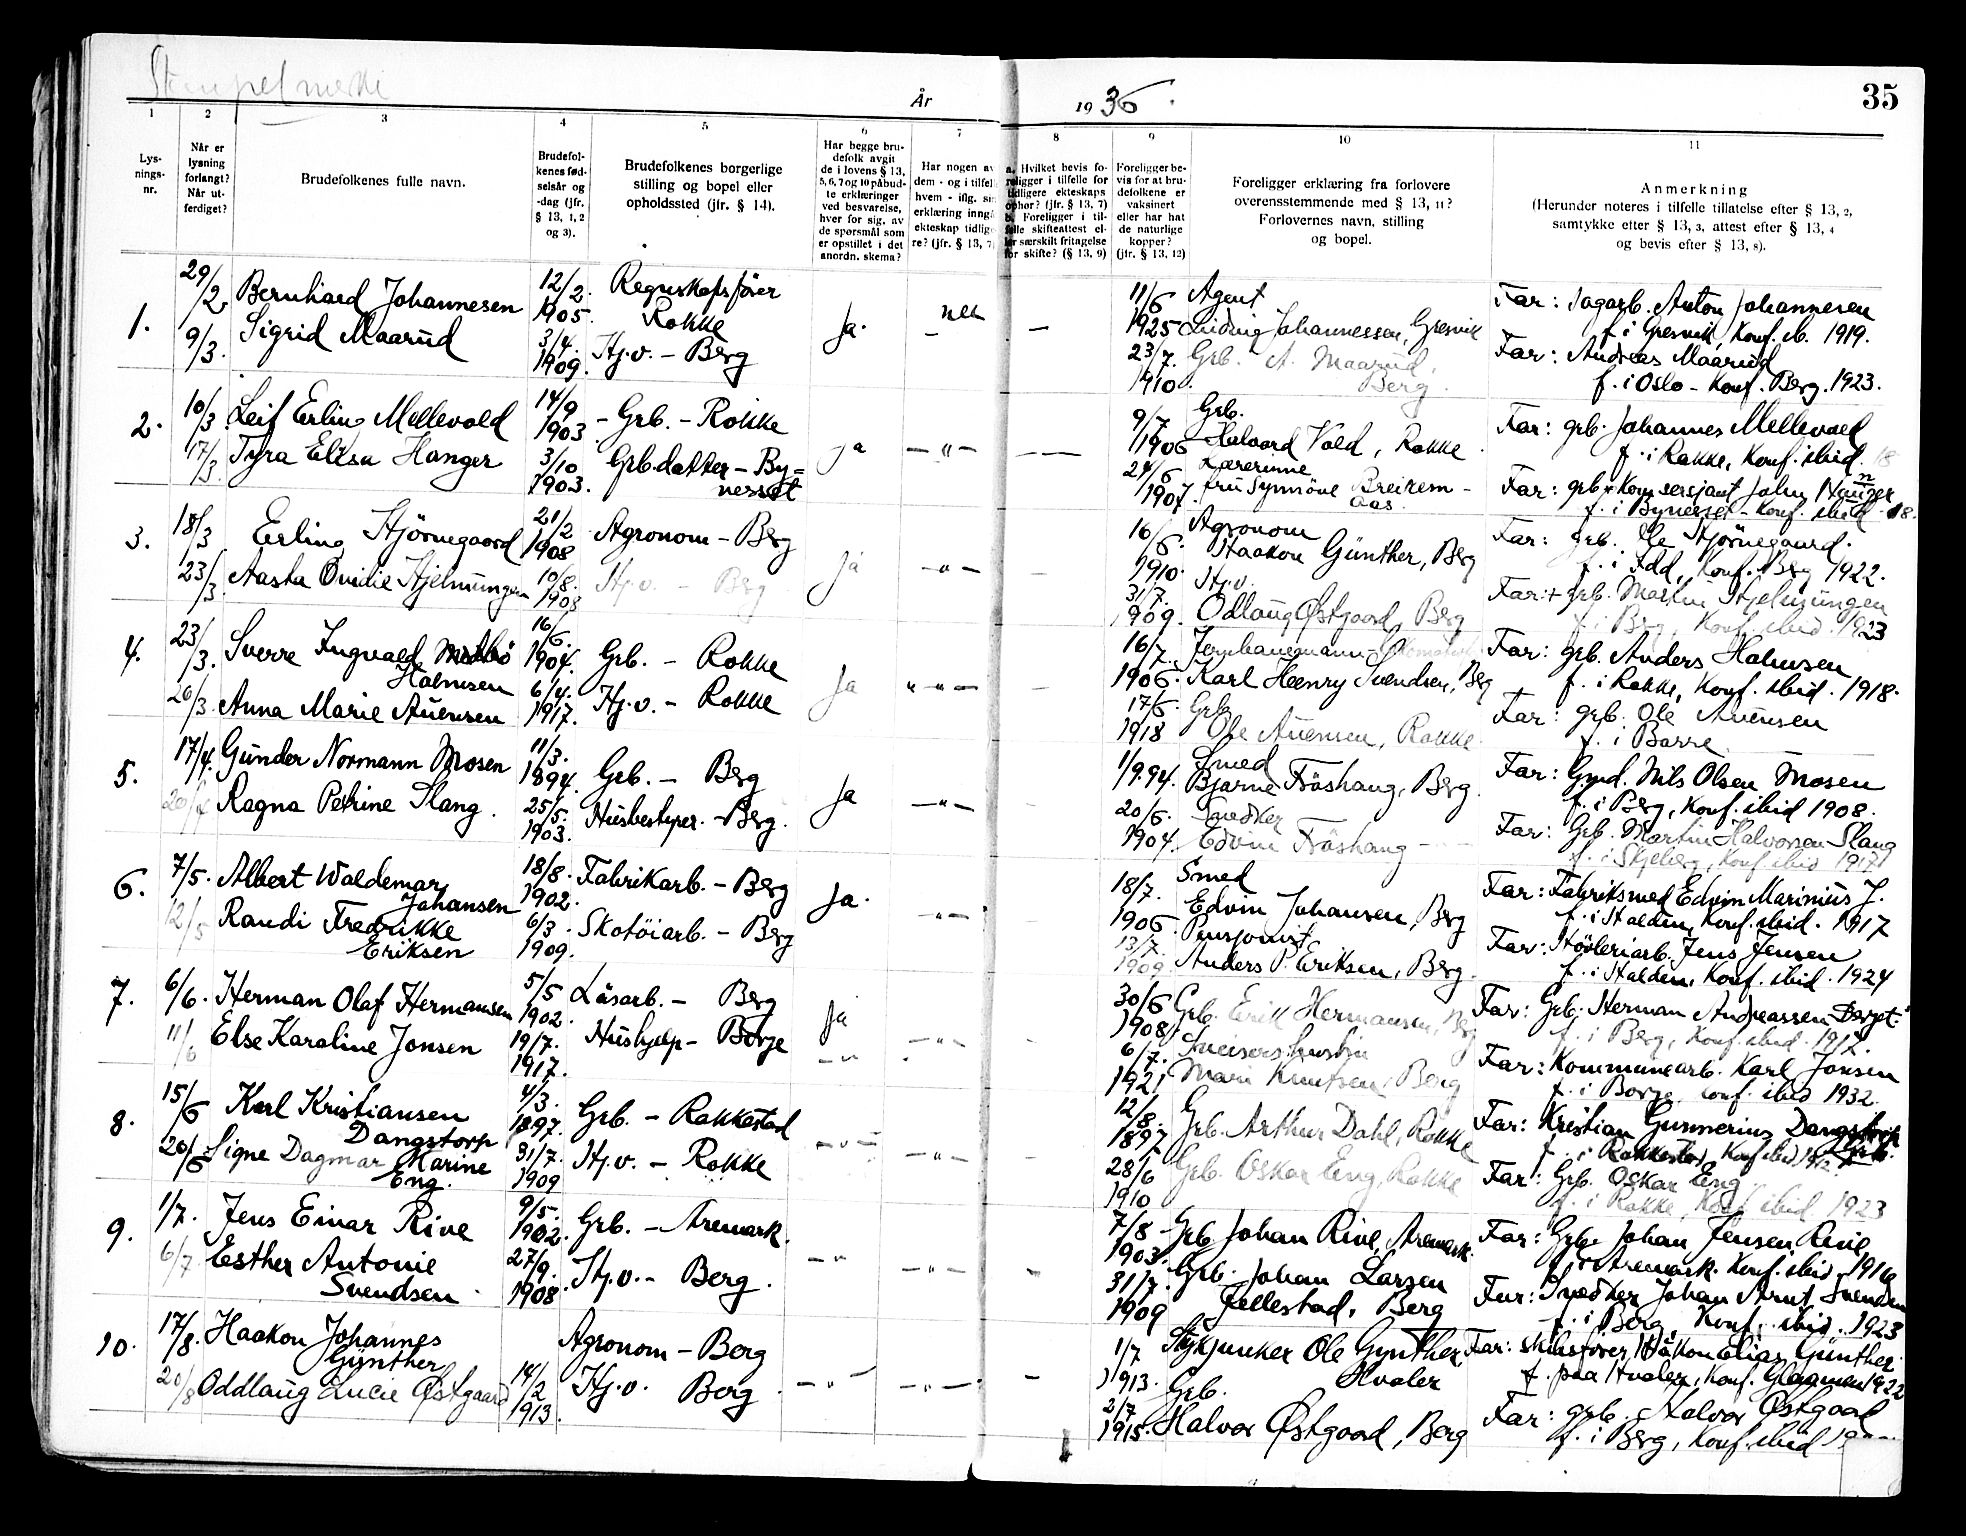 Stempelmerke
År 1936.
35
1 2 3 4 5 6 7 8 9 10 11
Lys-
nings-
nr.
Når er
lysning
forlangt?
Når ut-
ferdiget?
Brudefolkenes fulle navn.
Brudefol-
kenes fød-
selsår og
-dag (jfr.
§ 13, 1, 2
og 3).
Brudefolkenes borgerlige
stilling og bopel eller
opholdssted (jfr. § 14).
Har begge bru-
defolk avgit
de i lovens § 13,
5, 6, 7 og 10 påbud-
te erklæringer
ved besvarelse,
hver for sig, av
de spørsmål som
er opstillet i det
anordn. skema?
Har nogen av
dem - og i tilfelle
hvem - iflg. sin
erklæring inngå
ekteskap tidlige-
re? (jfr. § 13, 7)
a. Hvilket bevis fo-
religger i tilfelle for
tidligere ekteskaps
ophør? (§ 13, 7)
b. Foreligger i til-
felle skifteattest el-
ler særskilt fritagelse
for skifte? (§ 13, 9)
Foreligger be-
vis for at bru-
defolkene er
vaksinert
eller har hat
de naturlige
kopper?
(jfr. § 13, 12)
Foreligger erklæring fra forlovere
overensstemmende med § 13, 11?
Forlovernes navn, stilling
og bopel.
Anmerkning
(Herunder noteres i tilfelle tillatelse efter § 13, 2,
samtykke etter § 13, 3, attest efter § 13, 4
og bevis efter § 13, 8).
1. 29/2 Bernhard Johannesen 12/2. 1905. Regnskapsfører Rokke Ja. nei 11/6 1925 Agent Ludvig Johannessen, Gresvik Far: sagarb. Anton Johannesen
f. i Gresvik, Konf. ib. 1919.
9/3. Sigrid Maarud 3/4. 1909. Hj.v. - Berg 23/7. 1910. Grb. A. Maarud, Berg. Far: Andreas Maarud
f. i Oslo - Konf. Berg. 1923.
2. 10/3 Leif Erling Mellevold 14/9 1903 - Grb. - Rokke ja - " - 9/7 1906 Grb. Halvard Vold, Rokke Far: grb. Johannes Mellevold
f. i Rokke, Konf. ibid. 18
17/3 Tyra Elisa Hanger 3/10 1903. Grb.datter - By-
nesset 24/6 1907. Lærerinne fru Synnöve Breirem - Aas. Far: grb. John Hanger
f. i Bynesset - Konf. ibid. 18.
3. 18/3 Erling Hjörnegaard 21/2 1908 Agronom - Berg ja - " - 16/6. 1910. Agronom Haakon Günther, Berg Far: grb. Ole Hjörnegaard.
f. i Idd, Konf. Berg 1922.
23/3 Aasta Emilie Hjelmungen 10/8. 1908 Hj.v. - Berg 31/7. 1909. Hj.v. Odlaug Østgaard, Berg Far: + grb. Martin Hjelmungen
f. i Berg, Konf. ibid. 1923
4. 23/3. Sverre Ingvald
Halvorsen 16/6. 1904. Grb. - Rokke Ja " " - 16/7. 1906. Jernbanemann - Karl Henry Svendsen, Berg Far: grb. Anders Halvorsen
f. i Rokke, Konf. ibid. 1918.
26/3. Anna Marie Auensen 6/4. 1917. Hj.v. - Rokke 17/6. 1918 Grb. Ole Auensen, Rokke. Far: grb. Ole Auensen
f. i Borre.
5. 17/4. Gunder Normann Mosen 11/3. 1894. Grb. - Berg Ja - " - 1/9.94. Smed Bjarne Fråshaug, Berg. Far: Gmd. Nils Olsen Mosen
f. i Berg, Konf. ibid 1908.
20/4 Ragna Petrine Slang. 25/5. 1903. Husbestyrer. - Berg. 20/6. 1904. Snedker Edvin Fråshaug - Far: Grb. Martin Halvorsen Slang
f. i Skjeberg, Konf. ibid 1917
6. 7/5. Albert Waldemar
Johansen 18/8. 1902. Fabrikarb. - Berg Ja. - " - 18/7. 1906 Smed Edvin Johansen, Berg Far: Fabriksmed Edvin Marinius J.
f. i Halden, Konf. ibid. 1917
12/5 Randi Fredrikke
Eriksen 6/3. 1909. Skotöiarb. - Berg 13/7. 1909. Pensjonist Anders P. Eriksen, Berg. Far: Hövleriarb. Jens Jensen
f. i Halden, Konf. ibid. 1924
7. 6/6. Herman Olaf Hermansen 5/5 1902. Låsarb. - Berg Ja - " - 30/6 1908 Grb. Erik Hermansen, Berg Far: Grb. Herman Andreassen
f. i Berg, Konf. ibid. 1917.
11/6 Else Karoline Jonsen 19/7. 1917. Hushjelp - Borge - " 6/7. 1921 Mari Knutsen, Berg Far: Kommunearb. Karl Jonsen
f. i Borge, Konf. ibid 1932.
8. 15/6 Karl Kristiansen
Dangstorp 4/3. 1897. Grb. - Rakkestad - " - - " - 12/8. 1897 Grb. Arthur Dahl, Rokke Far: Kristian Gunnerius Dangstorp
f. i Rakkestad, Konf. ibid 1912.
20/6 Signe Dagmar Karine
Eng. 31/7. 1909 Hj.v. - Rokke 28/6 1910 Grb. Oskar Eng, Rokke Far: Grb. Oskar Eng
f. i Rokke, Konf ibid 1923
9. 1/7. Jens Einar Rive 9/5. 1902. Grb. - Aremark. - " - " - 7/8 1903. Grb. Johan Rive, Aremark. Far: Grb. Johan Jensen Rive
f. i Aremark. Konf. ibid. 1916
6/7 Esther Antonie
Svendsen. 27/9. 1908. Hj.v. - Berg. 31/7. 1909 Grb. Johan Larsen
Fellestad, Berg Far: Snedker Johan Arnt Svendsen
f. i Berg. Konf. ibid. 1923
10. 17/8. Haakon Johannes
Günther Agronom - Berg - " - - " - 1/7 1913. Stykjunker Ole Gynther,
Hvaler Far: skibsfører Håkon Elias Günther.
f. paa Hvaler, Konf. Glagmen 1922
20/8 Oddlaug Lucie Østgaard 14/2 1913. Hj.v. Berg 2/7 1915. Grb. Halvor Østgaard, Berg Far: grb. Halvor Østgaard
f. i Berg, Konf. ibid